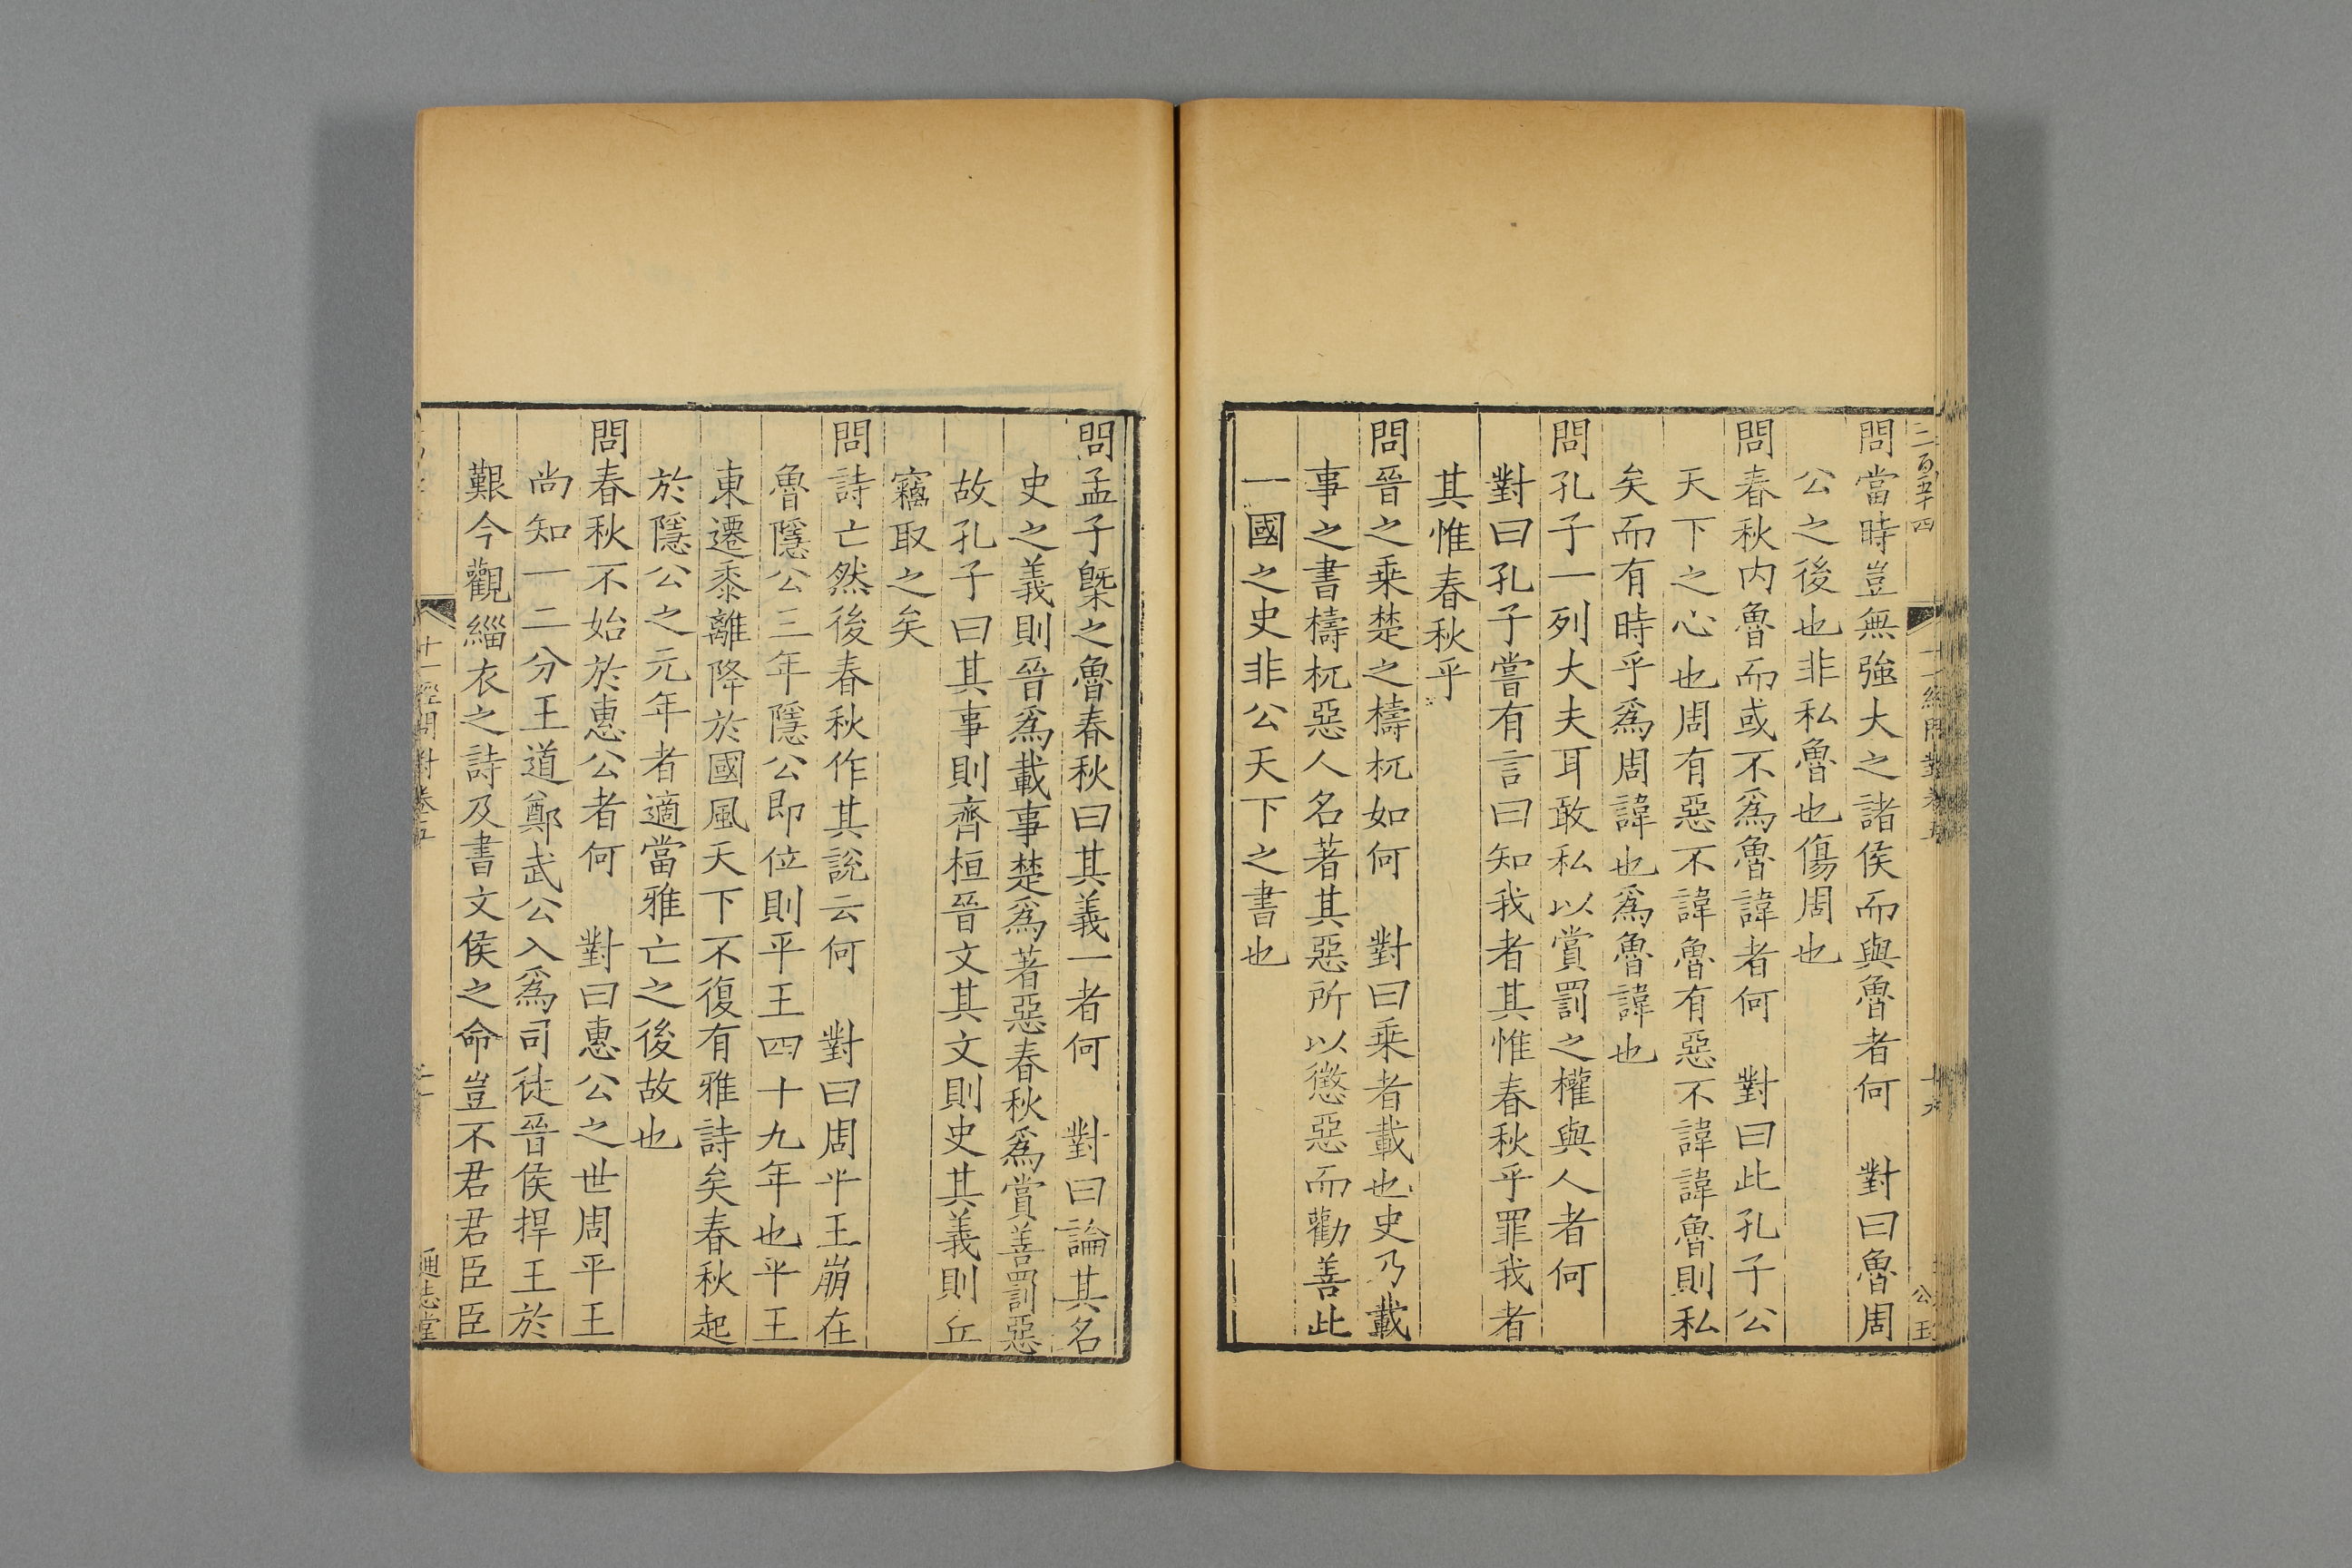 二百五十四
十一經問對卷五
十六
公玉
問當時豈無強大之諸侯而與魯者何　對曰魯周
公之後也非私魯也傷周也
問春秋内魯而或不爲魯諱者何　對曰此孔子公
天下之心也周有惡不諱魯有惡不諱諱魯則私
矣而有時乎爲周諱也爲魯諱也
問孔子一列大夫耳敢私以賞罰之權與人者何
對曰孔子嘗有言曰知我者其惟春秋乎罪我者
其惟春秋乎
問晉之乗楚之檮杌如何　對曰乗者載也史乃載
事之書檮杌惡人名著其惡所以懲惡而勸善此
一國之史非公天下之書也
問孟子槩之魯春秋曰其義一者何　對曰論其名
史之義則晉爲載事楚爲著惡春秋爲賞善罰惡
故孔子曰其事則齊桓晉文其文則史其義則丘
竊取之矣
問詩亡然後春秋作其說云何　對曰周平王崩在
魯隱公三年隱公即位則平王四十九年也平王
東遷黍離降於國風天下不復有雅詩矣春秋起
於隱公之元年者適當雅亡之後故也
問春秋不始於惠公者何　對曰惠公之世周平王
尚知一二分王道鄭武公入爲司徒晉侯捍王於
艱今觀緇衣之詩及書文侯之命豈不君君臣臣
十一經問對卷五
通志堂